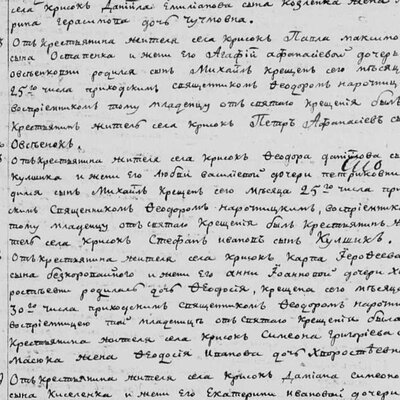 села Крисокъ Даніила Емиліанова сына Козленка жена М
рина Герасимова дочь Чугмовна.
Отъ крестьянина жителя села Крисокъ Павла Максимо
сына Остапенка и жены его Агафіи Афанасіевой дочерь
Овсіенковни родился сынъ Михаилъ крещенъ сего мѣсяц
25го числа приходскимъ священникомъ Феодоромъ Нарочиц
воспріемникомъ тому младенцу отъ святаго крещенія былъ
крестьянинъ житель села Крисокъ Петръ Афанасіевъ сы
Овсѣенокъ.
Отъ крестьянина жителя села Крисокъ Феодора сы
Кулшика и жены его Любви Василіевой дочери
дился сынъ Михаилъ крещенъ сего мѣсяца 25го числа при
скимъ священникомъ Феодоромъ Нарочицкимъ, воспріемник
тому младенцу отъ святаго крещенія былъ крестьянинъ ж
тель села Крисокъ Стефанъ Ивановъ сынъ Кулшикъ.
Отъ крестьянина жителя села Крисокъ Карпа Феродеева
сына Безкоропайнаго и жены его Анны Іоанновой дочери Хо
ростьевни родилась дочь Феодосія, крещена сего мѣсяц
30го числа приходскимъ священникомъ Феодоромъ Нарочи
воспріемницею той младеницѣ отъ святаго крещенія была
крестьянина жителя села Крисокъ Симеона Григоріева с
Масюка жена Феодосія Иванова дочь Хворостѣвна
Отъ крестьянина жителя села Крисокъ Даміана Симеоно
сына Киселенка и жены его Екатерины Ивановой дочери